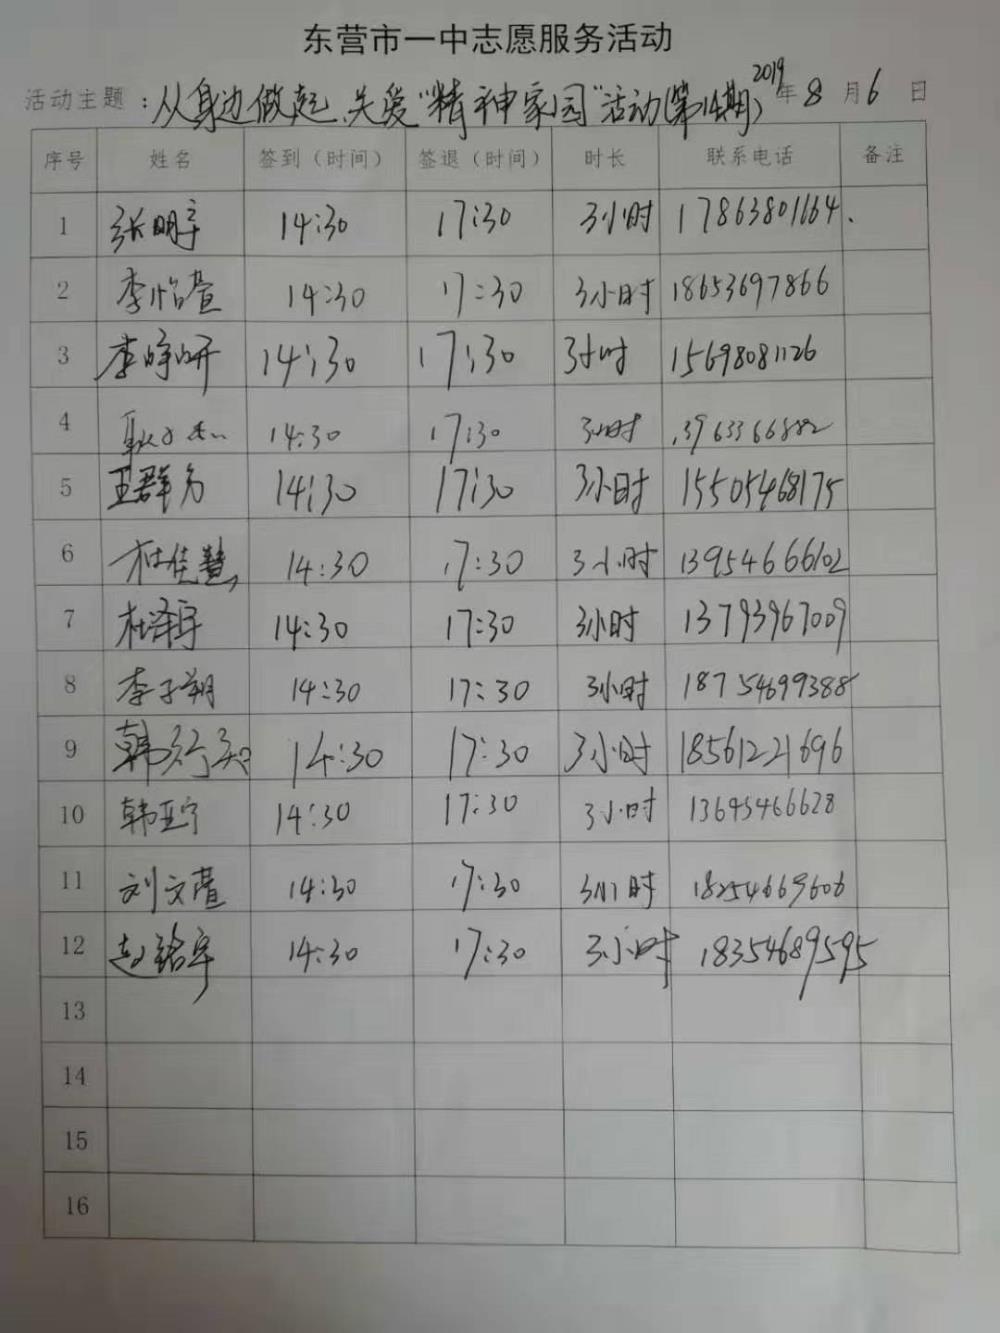 东营市一中志愿服务活动
活动主题：从身边做起、关爱“精神家园”活动(第14期) 2019年8月6日
序号 姓名 签到（时间） 签退（时间） 时长 联系电话 备注
1 张明宇 14:30 17:30 3小时 17863801164.
2 李怡萱 14:30 17:30 3小时 18653697866
3 李婷妍 14:30 17:30 3小时 15698081126
4 14:30 17:30 3小时
5 王群方 14:30 17:30 3小时 15505468175
6 杜佳慧 14:30 17:30 3小时 13954666102
7 杜泽宇 14:30 17:30 3小时 13793967009
8 李子翔 14:30 17:30 3小时 18754699388
9 韩行知 14:30 17:30 3小时 18561221696
10 韩亚宁 14:30 17:30 3小时 13645466628
11 刘文萱 14:30 17:30 3小时 18254669606
12 赵铭宇 14:30 17:30 3小时 18354689595
13
14
15
16